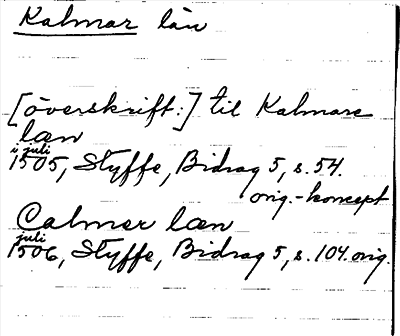 Kalmar län
[överskrift:] til Kalmare
læn
i juli
1505, Styffe, Bidrag 5, s. 54.
orig.-koncept
Calmer læn
juli
1506, Styffe, Bidrag 5, s. 104. orig.